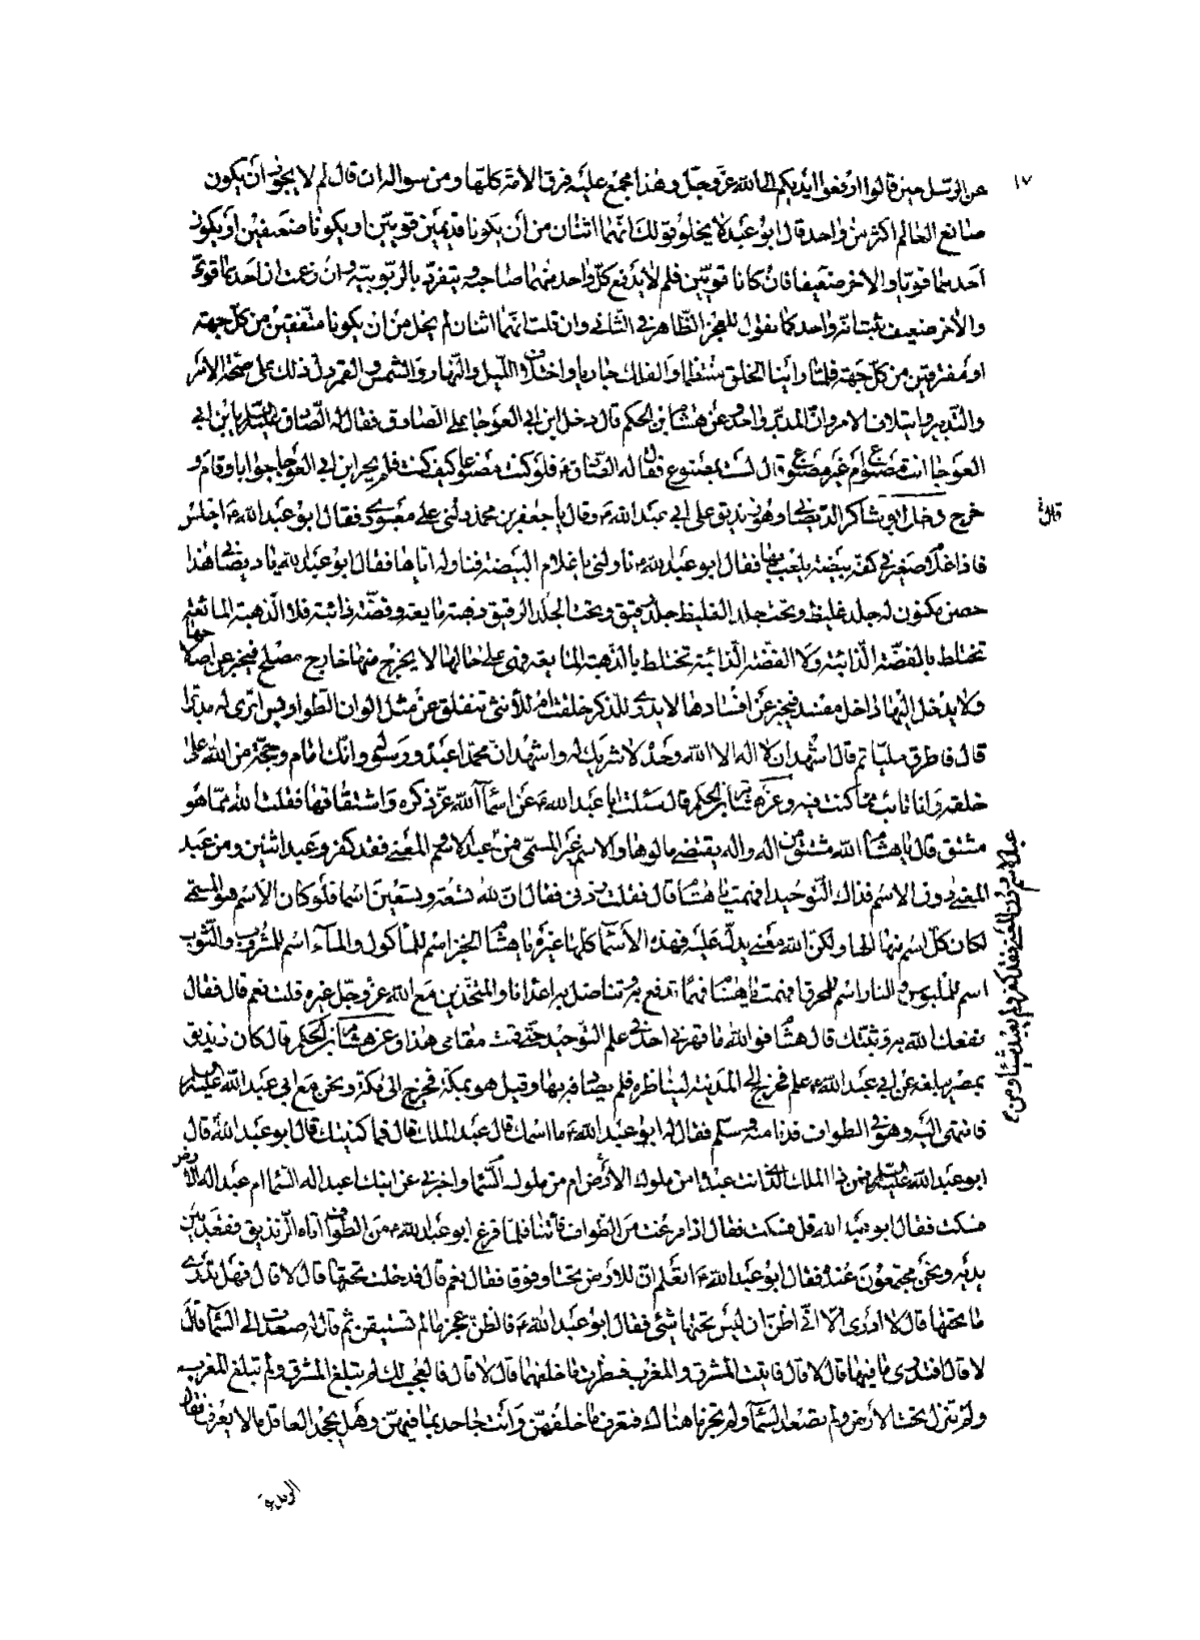 ١٧
عن الرسل حين قالوا ارفعوا ايديكم الى الله عزوجل وهذا مجمع عليه فرق الامة كلها ومن سواله ان قال لم لا يجوز ان يكون
صانع العالم اكثر من واحد قال ابو عبد لا يخلو قولك انهما اثنان من ان يكونا قديمين قويين او يكونا ضعيفين او يكون
احدهما قويا والاخر ضعيفا فان كانا قويين فلم لا يدفع كل واحد منهما صاحبه ويتفرد بالربوبية وان زعمت ان احدهما قوي
والاخر ضعيف ثبت انه واحد كما نقول للعجز الظاهر في الثاني وان قلت انهما اثنان لم يخل من ان يكونا متفقين من كل جهة
او مفترقين من كل جهة فلما راينا الخلق منتظما والفلك جاريا واختلاف الليل والنهار والشمس والقمر دل ذلك على صحة الامر
والتدبير وايتلاف الامر وان المدبر واحد وعن هشام بن الحكم قال دخل ابن ابي العوجا على الصادق فقال له الصادق عليه السلم يا ابن ابي
العوجا انت مصنوع ام غير مصنوع قال لست بمصنوع فقال له الصادق ع فلو كنت مصنوعا كيف كنت فلم يحر ابن ابي العوجا جوابا وقام و
خرج دخل ابو شاكر الديصاني وهو زنديق على ابي عبد الله ع وقال يا جعفر بن محمد دلني على معبودي فقال ابو عبد الله ع اجلس
قال
فاذا غلام صغير في كفه بيضة يلعب بها فقال ابو عبد الله ع ناولني يا غلام البيضة فناوله اياها فقال ابو عبد الله يا ديصاني هذا
حصن مكنون له جلد غليظ وتحت جلد الغليظ جلد رقيق وتحت الجلد الرقيق ذهبة مايعة وفضة ذائبة فلا الذهبة المائعة
تختلط بالفضة الذائبة ولا الفضة الذائبة تختلط بالذهبة المايعة فهي على حالها لا يخرج منها خارج مصلح فيخبر عن اصلاحها
ولا يدخل اليها داخل مفسد فيخبر عن افسادها لا يدرى للذكر خلقت ام للأنثى تنفلق عن مثل الوان الطواويس اترى له مدبرا
قال فاطرق مليا ثم قال اشهد ان لا اله الا الله وحده لا شريك له واشهد ان محمدا عبده ورسوله وانك امام وحجة من الله على
خلقه وانا تائب مما كنت فيه وعن هشام بن الحكم قال سئلت ابا عبد الله ع عن اسماء الله عز ذكره واشتقاقها فقلت الله مما هو
مشتق قال يا هشام الله مشتق من اله واله يقتضي مالوها والاسم غير المسمى فمن عبد الاسم المعنى فقد كفر وعبد اثنين ومن عبد
عبد الاسم دون المعنى فقد كفر ولم يعبد شيئا ومن
المعنى دون الاسم فذاك التوحيد افهمت يا هشام قال فقلت زدني فقال ان لله تسعة وتسعين اسما فلو كان الاسم هو المسمى
لكان كل اسم منها الها ولكن الله معنى يدل عليه فهذه الأسما كلها غيره يا هشام الخبز اسم للمأكول والماء اسم للمشروب والثوب
اسم للملبوس والنار اسم للمحرق افهمت يا هشام فهما تدفع به وتناضل به اعدائنا والمتخذين مع الله عزوجل غيره قلت نعم قال فقال
نفعك الله به وثبتك قال هشام فوالله ما قهرني احد في علم التوحيد حتى قمت مقامي هذا وعن هشام بن الحكم قال كان زنديق
بمصر يبلغه عن ابي عبد الله ع علم فخرج الى المدينة ليناظره فلم يصادفه بها وقيل هو بمكة فخرج الى مكة ونحن مع ابي عبد الله عليه السلم
فانتهى اليه وهو في الطواف فدنا منه وسلم فقال له ابو عبد الله ع ما اسمك قال عبد الملك قال فما كنيتك قال ابو عبد الله قال
ابو عبد الله عليه السلم فمن ذا الملك الذي انت عبده امن ملوك الارض ام من ملوك السما واخبرني عن ابنك اعبد اله السما ام عبد اله الارض
فسكت فقال ابو عبد الله قل فسكت فقال اذا فرغت من الطواف فأتنا فلما فرغ ابو عبد الله ع من الطواف اتاه الزنديق فقعد بين
يديه ونحن مجتمعون عنده فقال ابو عبد الله ع اتعلم ان للأرض تحتا وفوقا فقال نعم قال فدخلت تحتها قال لا قال فهل تدري
ما تحتها قال لا ادري الا اني اظن ان ليس تحتها شيئ فقال ابو عبد الله ع فالظن عجز ما لم تستيقن ثم قال له صعدت الى السما قال
لا قال افتدري ما فيها قال لا قال فاتيت المشرق والمغرب فنظرت ما خلفهما قال لا قال فالعجب لك لم تبلغ المشرق ولم تبلغ المغرب
ولم تنزل تحت الارض ولم تصعد السماء ولم تجز ما هناك فتعرف ما خلفهن وانت جاحد بما فيهن وهل يجحد العاقل ما لا يعرف فقال